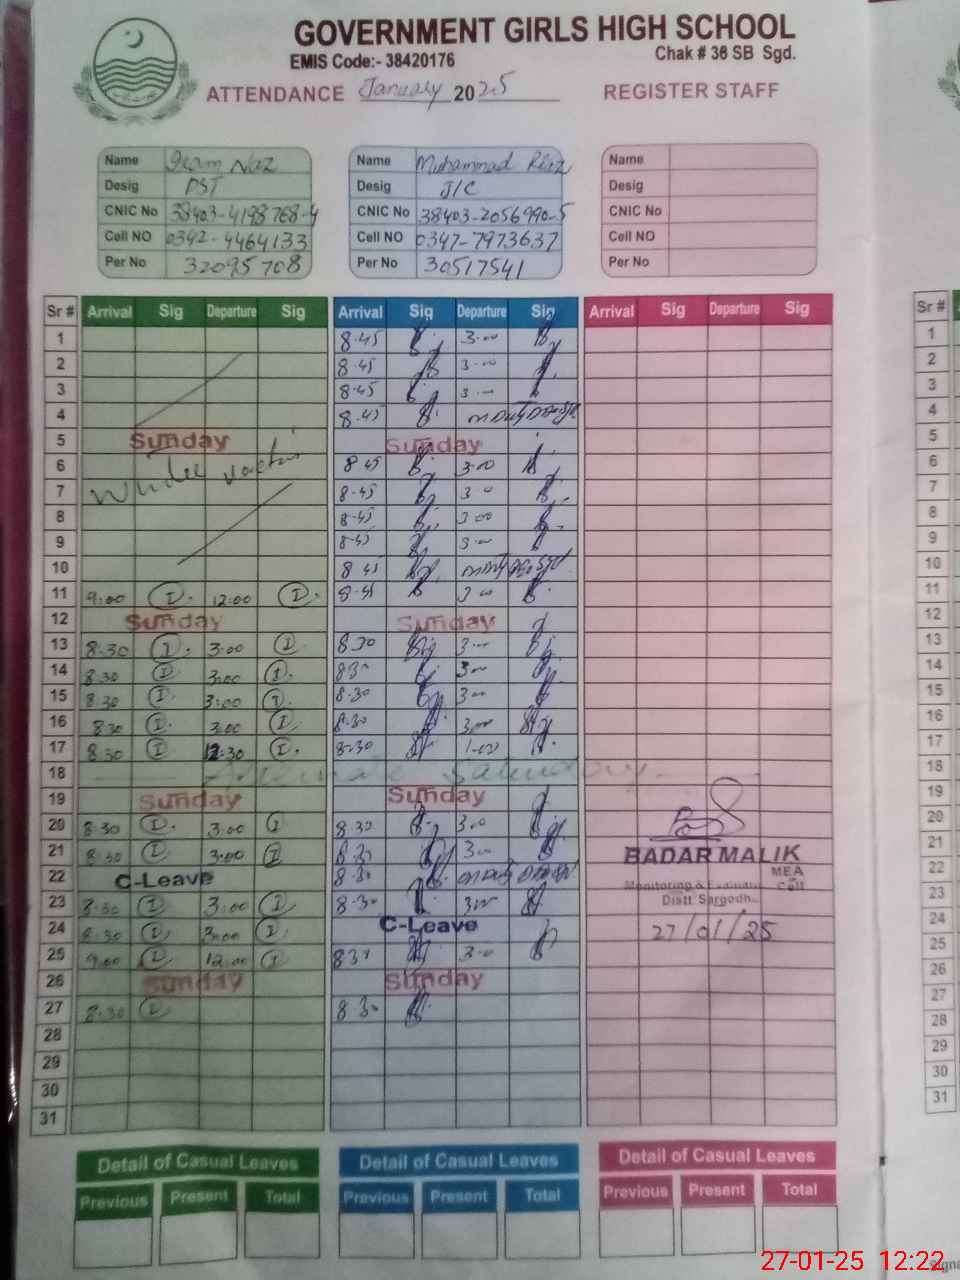 GOVERNMENT GIRLS HIGH SCHOOL
EMIS Code:- 38420176 Chak # 36 SB Sgd.
ATTENDANCE January 2025 REGISTER STAFF
Name Naz Name Muhammad Riaz Name
Desig PST Desig J/C Desig
CNIC No 38403-4198768-4 CNIC No 38403-2056990-5 CNIC No
Cell NO 0342-4464133 Cell NO 0347-7973637 Cell NO
Per No 32095708 Per No 30517541 Per No
Sr # Arrival Sig Departure Sig Arrival Sig Departure Sig Arrival Sig Departure Sig
1 8.45 3.00 1
2 8.45 3.00 2
3 8.45 3.00 3
4 8.45 4
5 Sunday Sunday 5
6 8 45 3.00 6
7 8.45 3 00 7
8 8.45 3 00 8
9 8.45 3.00 9
10 8 45 10
11 9:00 I 12:00 I 8.45 3 00 11
12 Sunday Sunday 12
13 8.30 I 3.00 I 8.30 3.00 13
14 8.30 I 3:00 I 8.30 3.00 14
15 8.30 I 3:00 I 8.30 3.00 15
16 8.30 I 3.00 I 8.30 3.00 16
17 8.30 I 12:30 I 8.30 1.00 17
18 Saturday. 18
19 Sunday Sunday 19
20 8.30 I 3:00 I 8.30 3.00 20
21 8.30 I 3:00 I 8.30 3.00 21
BADAR MALIK
22 C-Leave 8.30 22
MEA
23 8.30 I 3:00 I 8.30 3.00 23
Monitoring & Cell
Distt. Sargodha
24 8.30 I 3:00 I C-Leave 24
27/01/25
25 9:00 I 12:00 I 8.30 3.00 25
26 Sunday Sunday 26
27 8.30 I 8.30 27
28 28
29 29
30 30
31 31
Detail of Casual Leaves Detail of Casual Leaves Detail of Casual Leaves
Previous Present Total Previous Present Total Previous Present Total
27-01-25 12:22